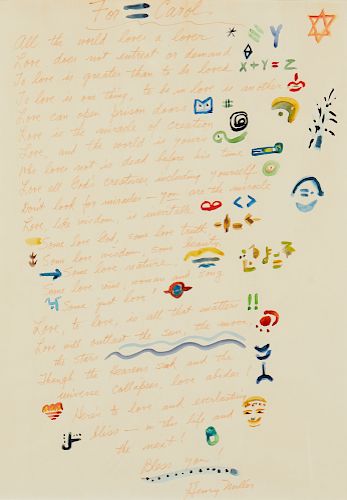 For = Carol
All the world loves a lover
Love does not entreat or demand
To love is greater than to be loved
To love is one thing, to be in love is another
Love can open prison doors
Love is the miracle of creation
Love, and the world is yours
Who loves not is dead before his time
Love all God's creatures, including yourself
Don't look for miracles – you are the miracle
Love, like wisdom, is inevitable
Some love God, some love truth,
Some love wisdom, some beauty,
Some love nature
Some love wine, woman and song
Some just love!
Love, to love, is all that matters
Love will outlast the sun, the moon,
the stars
Though the heavens sink and the
universe collapses, love abides!
Here's to love and everlasting
bliss – in this life and
the next!
Bless you!
Henry Miller
Y
X + Y = Z
!!